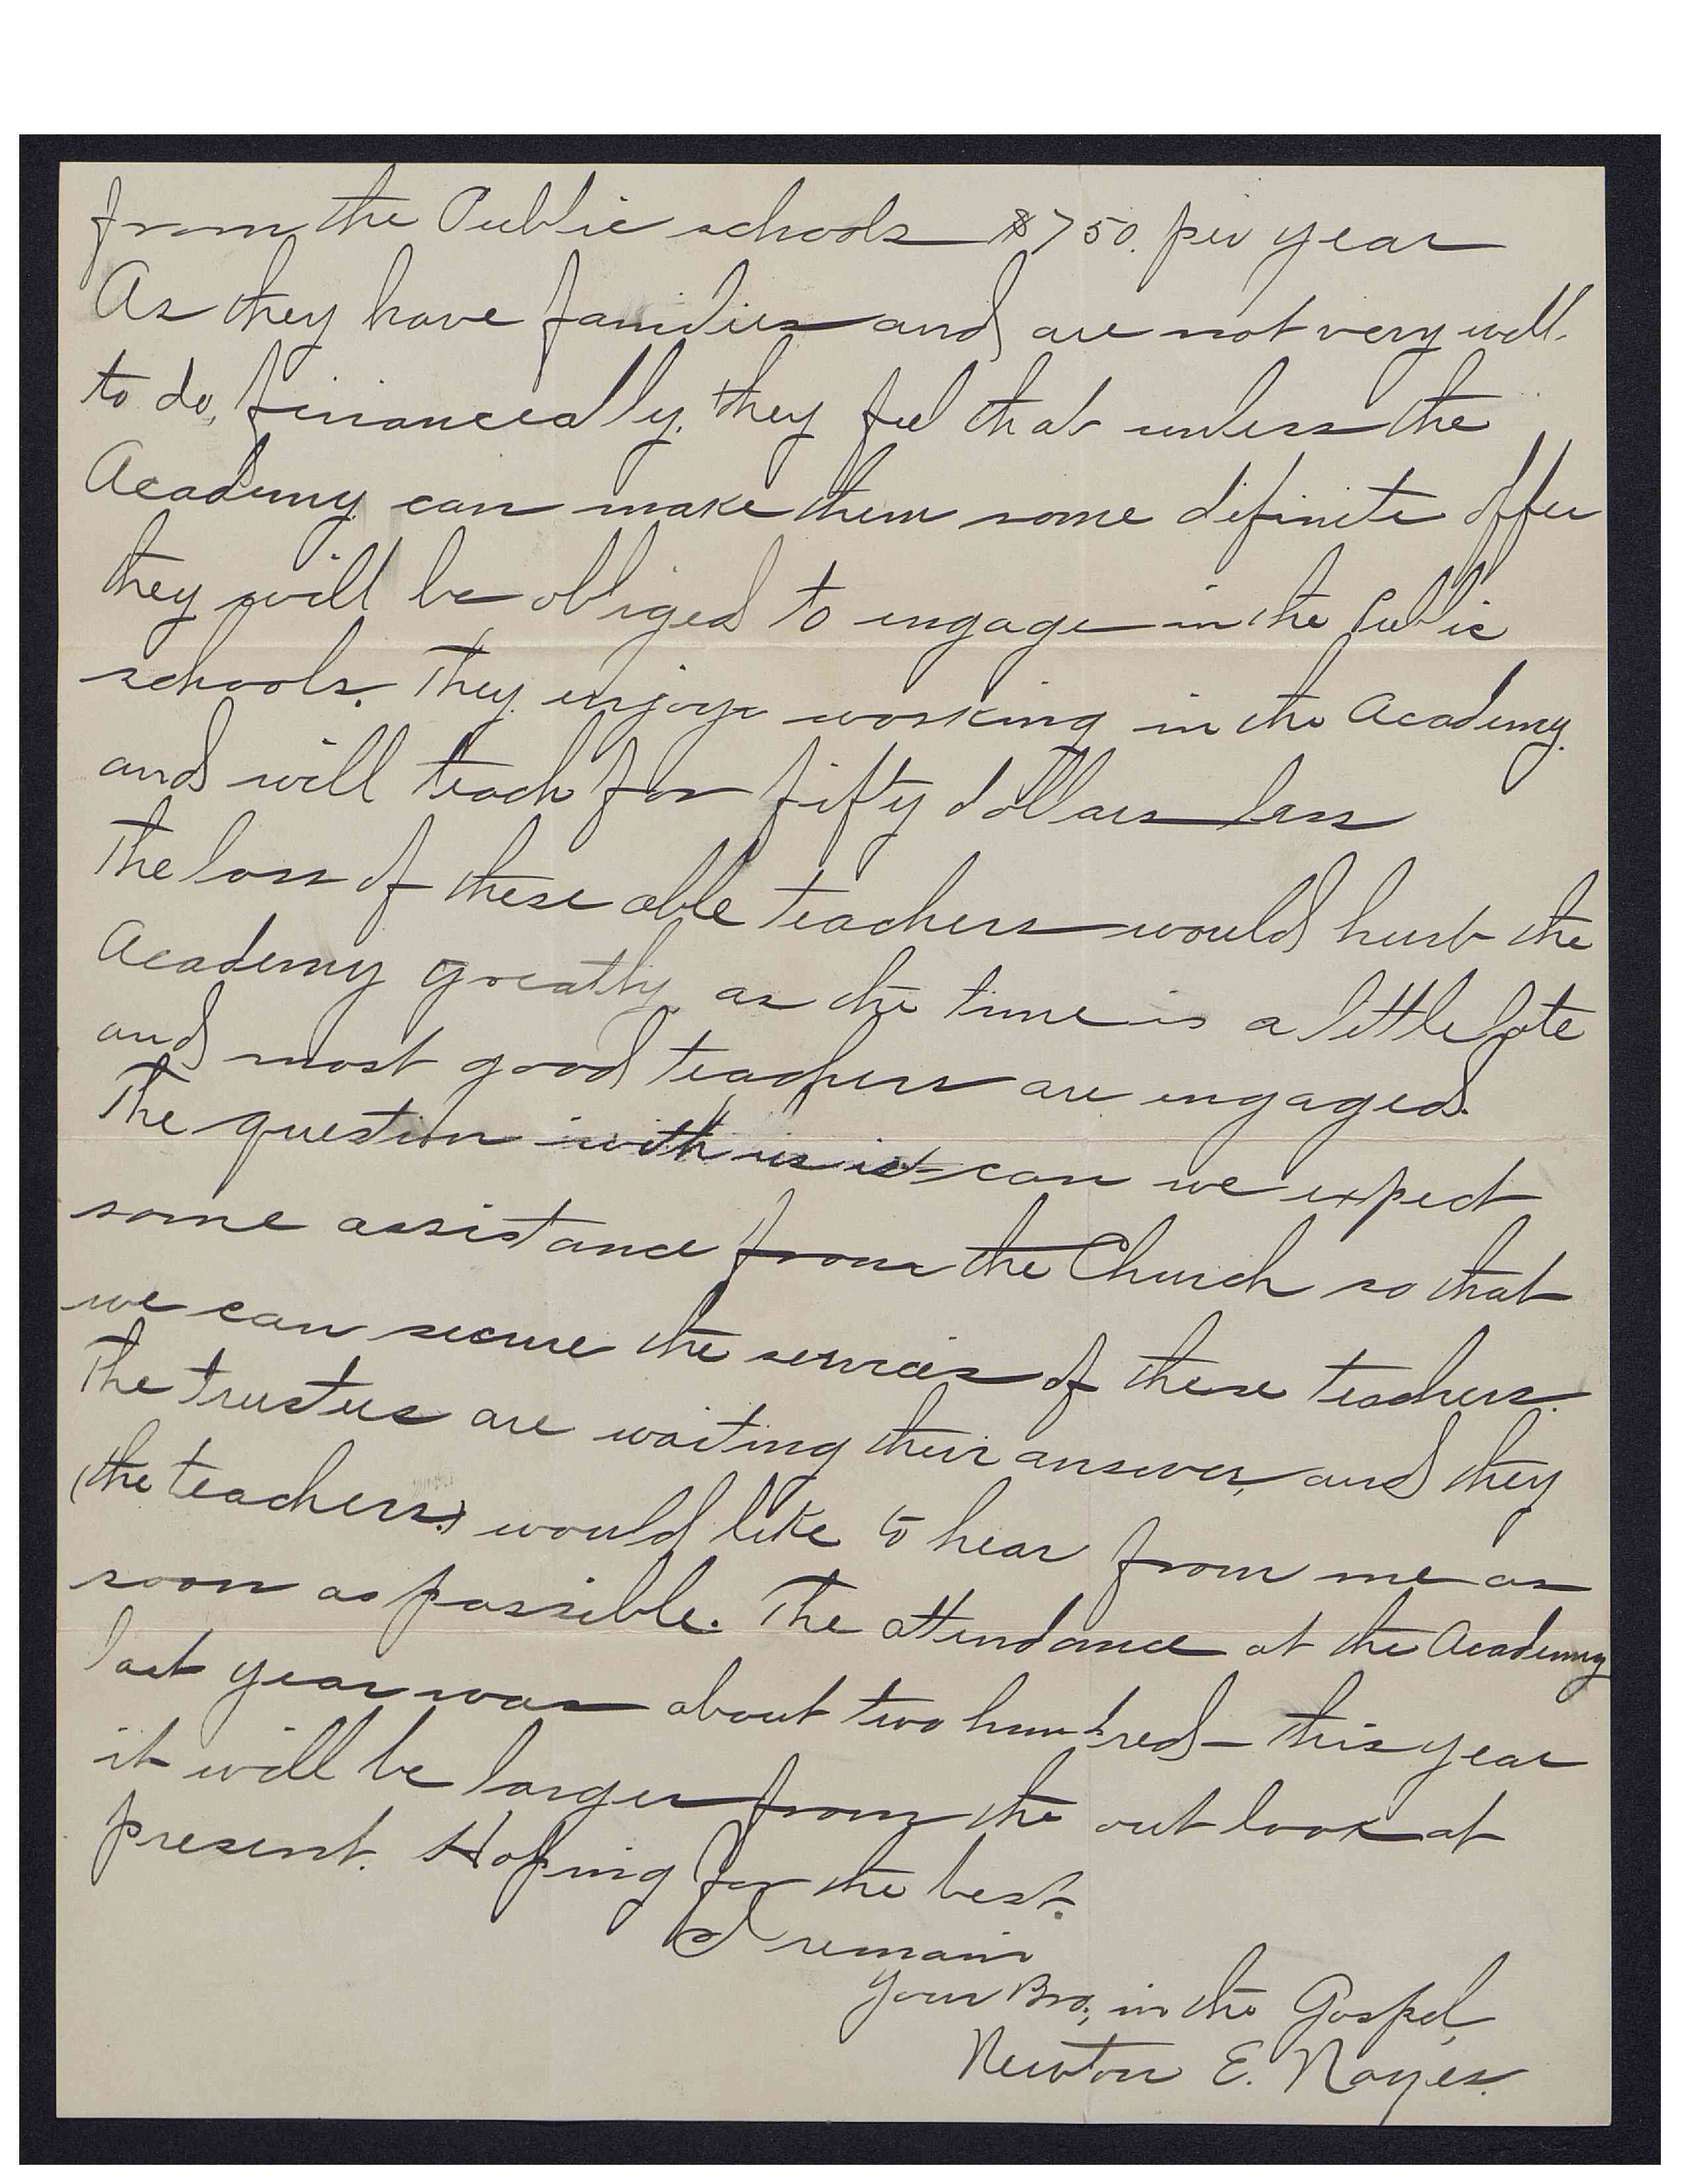 from the Public schools $750. per year
As they have families and are not very well-
to do, financially, they feel that unless the
Academy can make them some definite offer
they will be obliged to engage in the Public
schools. They enjoy working in the Academy
and will teach for fifty dollars less
The loss of these able teachers would hurt the
Academy greatly, as the time is a little late
and most good teachers are engaged.
The question with us is can we expect
some assistance from the Church so that
we can secure the services of these teachers.
The trustees are waiting their answer, and they
(the teachers.) would like to hear from me as
soon as possible. The attendance at the Academy
last year was about two hundred - this year
it will be larger from the out look at
present. Hoping for the best.
I remain
Your Bro; in the Gospel,
Newton E. Noyes.